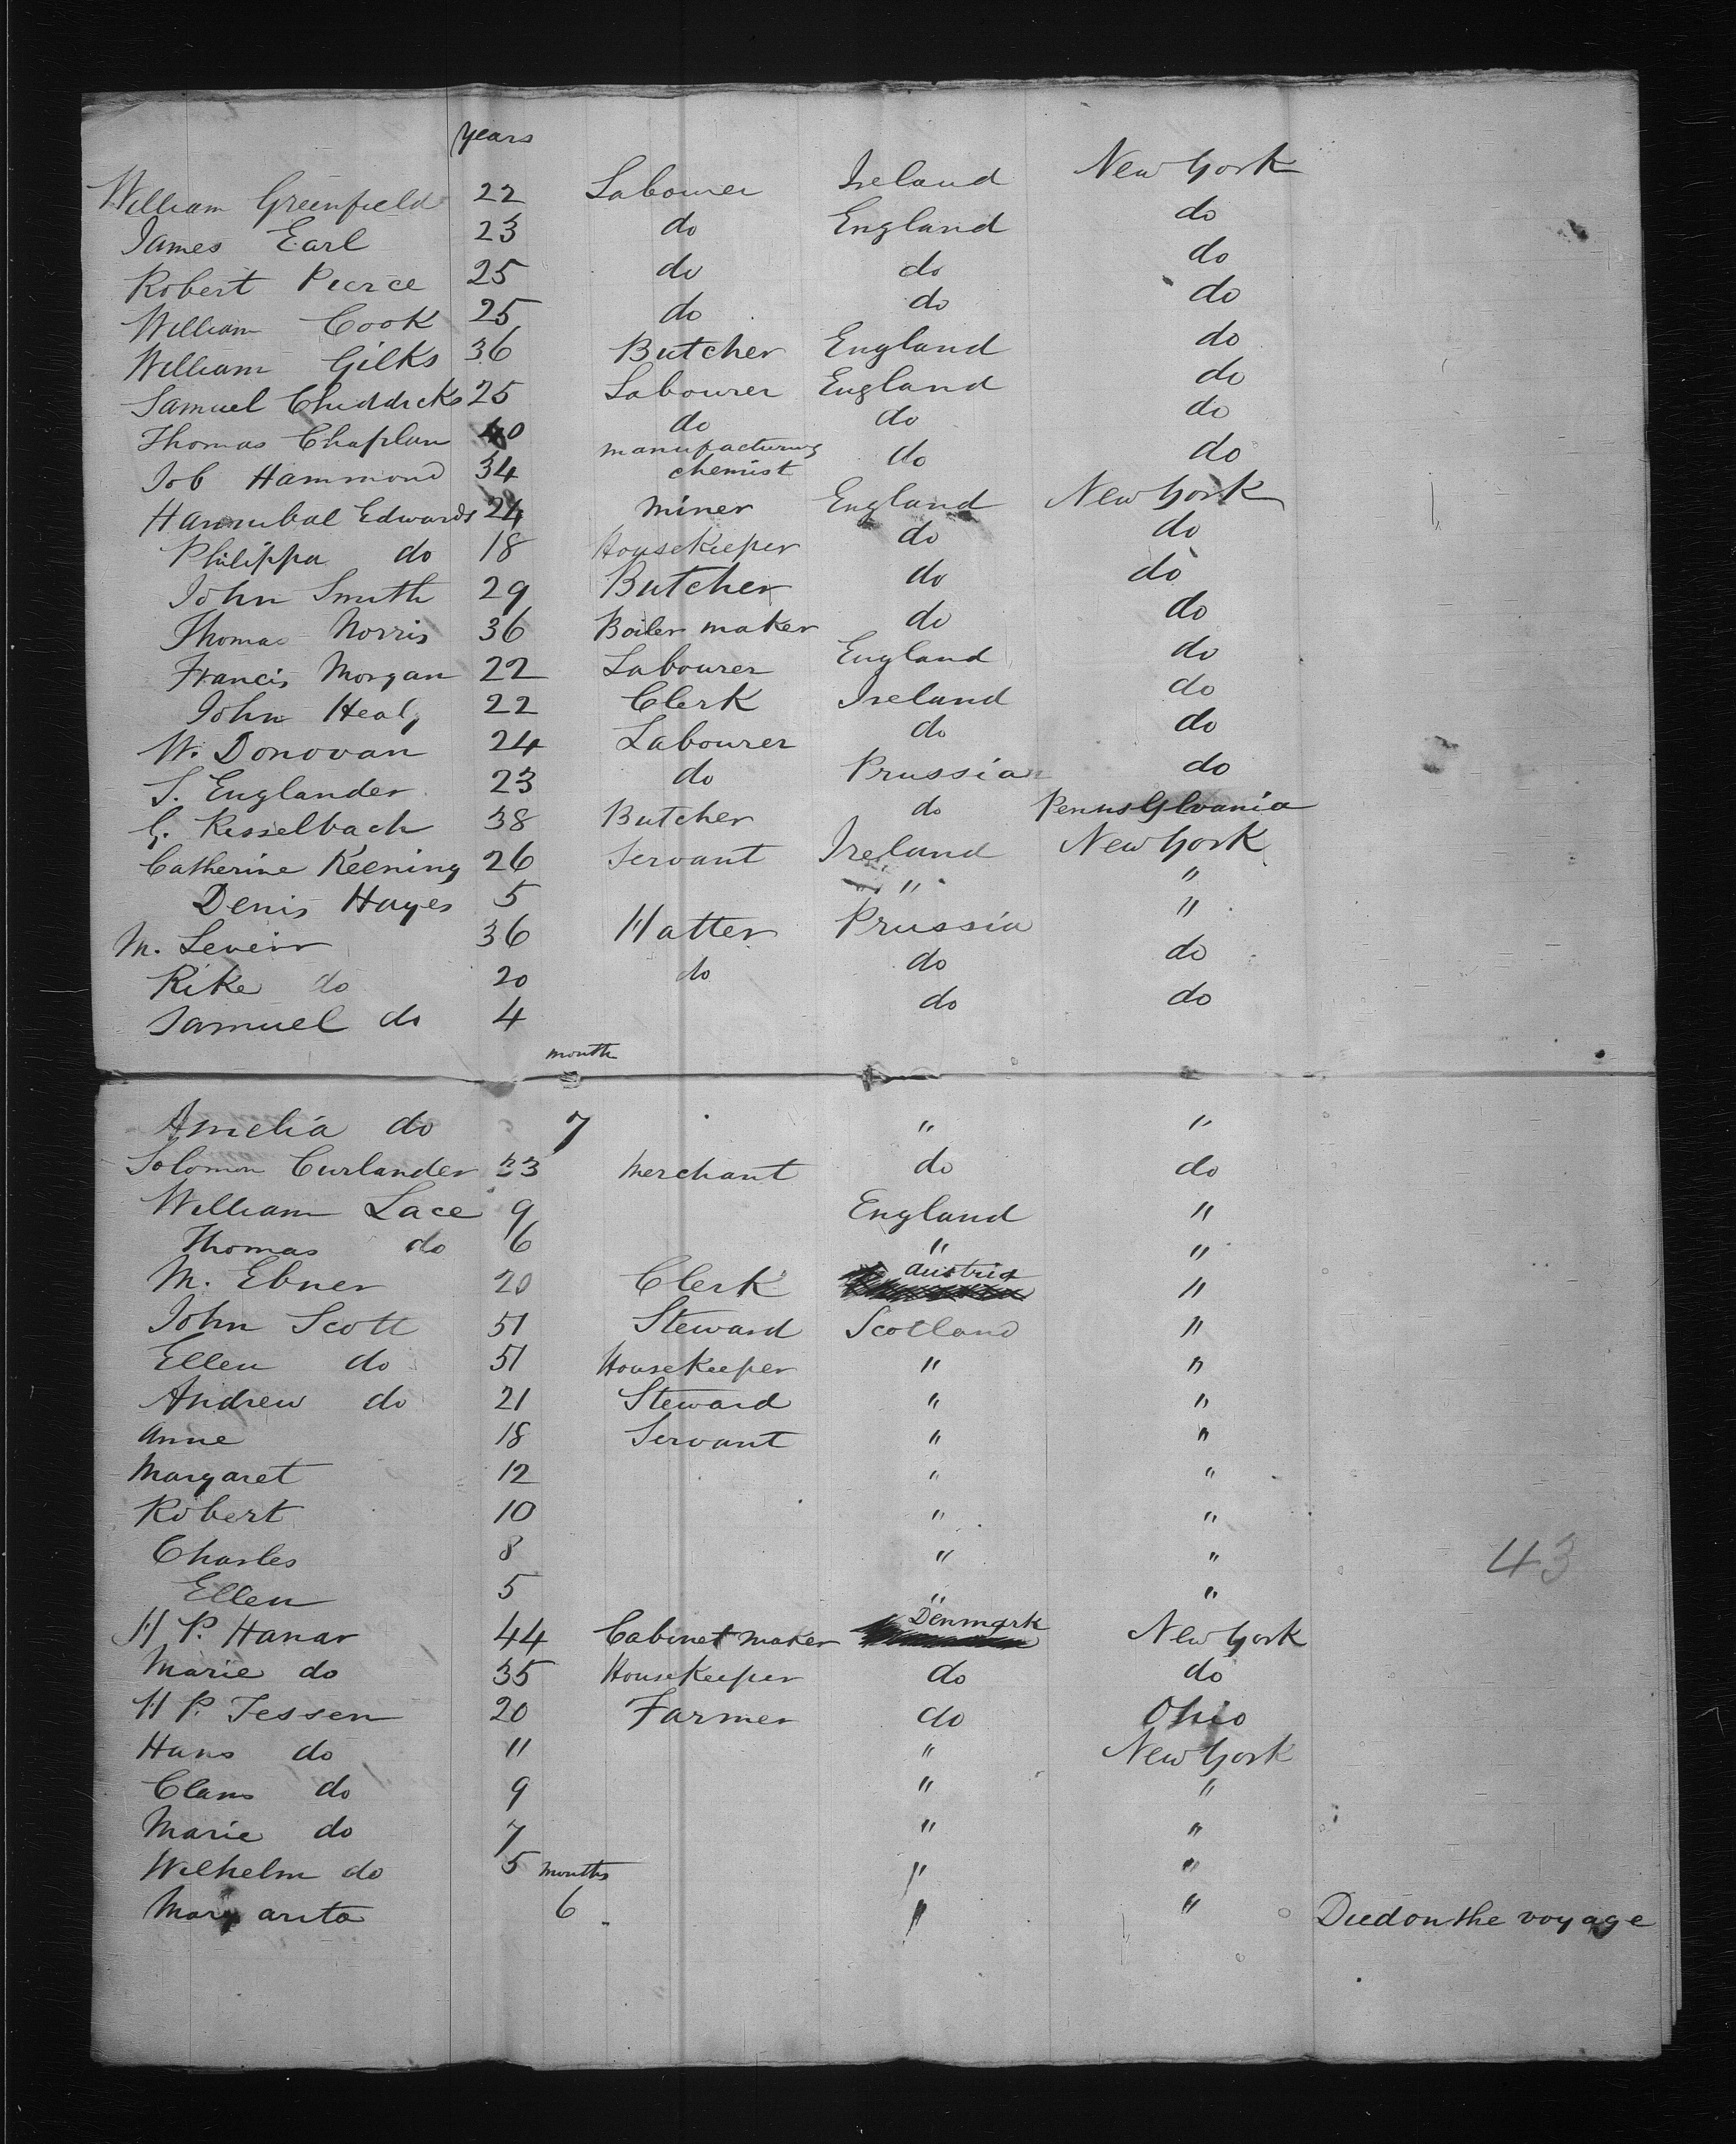 years
William Greenfield 22 Labourer Ireland New York
James Earl 23 do England do
Robert Pierce 25 do do do
William Cook 25 do do do
William Gilks 36 Butcher England do
Samuel Chiddicks 25 Labourer England do
Thomas Chaplin 40 do do do
Job Hammond 34 manufacturing chemist do do
Hannibal Edwards 24 Miner England New York
Philippa do 18 Housekeeper do do
John Smith 29 Butcher do do
Thomas Norris 36 Boiler maker do do
Francis Morgan 22 Labourer England do
John Healy 22 Clerk Ireland do
W. Donovan 24 Labourer do do
S. Englander 23 do Prussia do
G. Kisselbach 38 Butcher do Pennsylvania
Catherine Keening 26 Servant Ireland New York
Denis Hayes 5 " "
M. 36 Hatter Prussia "
Rike do 20 do do do
Samuel do 4 do do
month
Amelia do 7 " "
Solomon Curlander 33 Merchant do do
William Lace 9 England "
Thomas do 6 " "
M. Ebner 20 Clerk Austria "
John Scott 51 Steward Scotland "
Ellen do 51 Housekeeper " "
Andrew do 21 Steward " "
Anne 18 Servant " "
Margaret 12 " "
Robert 10 " "
Charles 8 " "
43
Ellen 5 " "
H P. Hanar 44 Cabinet maker Denmark New York
Marie do 35 Housekeeper do do
H P. Jessen 20 Farmer do Ohio
Hans do 11 " New York
Claus do 9 " "
Marie do 7 " "
Wilhelm do 5 months " "
Margarita 6 " " Died on the voyage